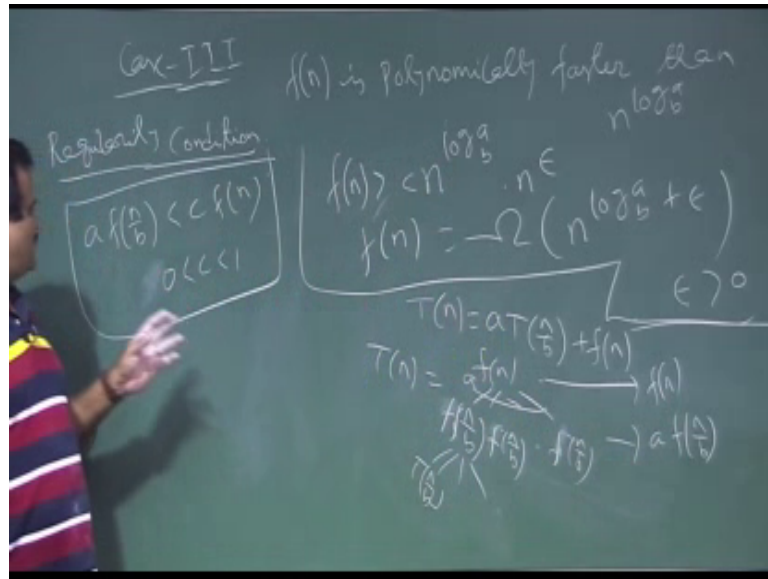 Case-III
f(n) is Polynomically faster than
n^{log_b^a}
Regularity Condition
a f(n/b) < c f(n)
0 < c < 1
f(n) > c n^{log_b^a} . n^ϵ
f(n) = Ω(n^{log_b^a + ϵ})
ϵ > 0
T(n) = aT(n/b) + f(n)
T(n) = f(n) → f(n)
a
f(n/b) f(n/b) . f(n/b) → a f(n/b)